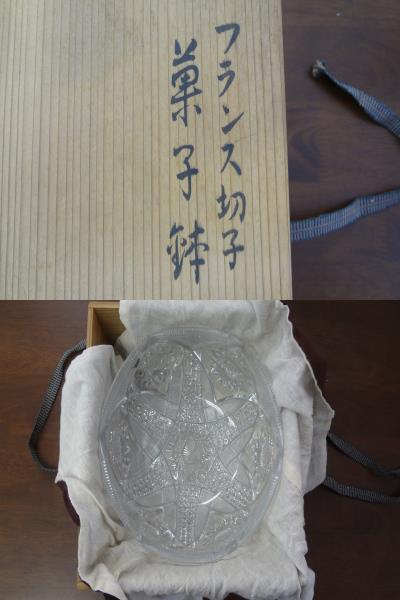 フランス切子
菓子鉢